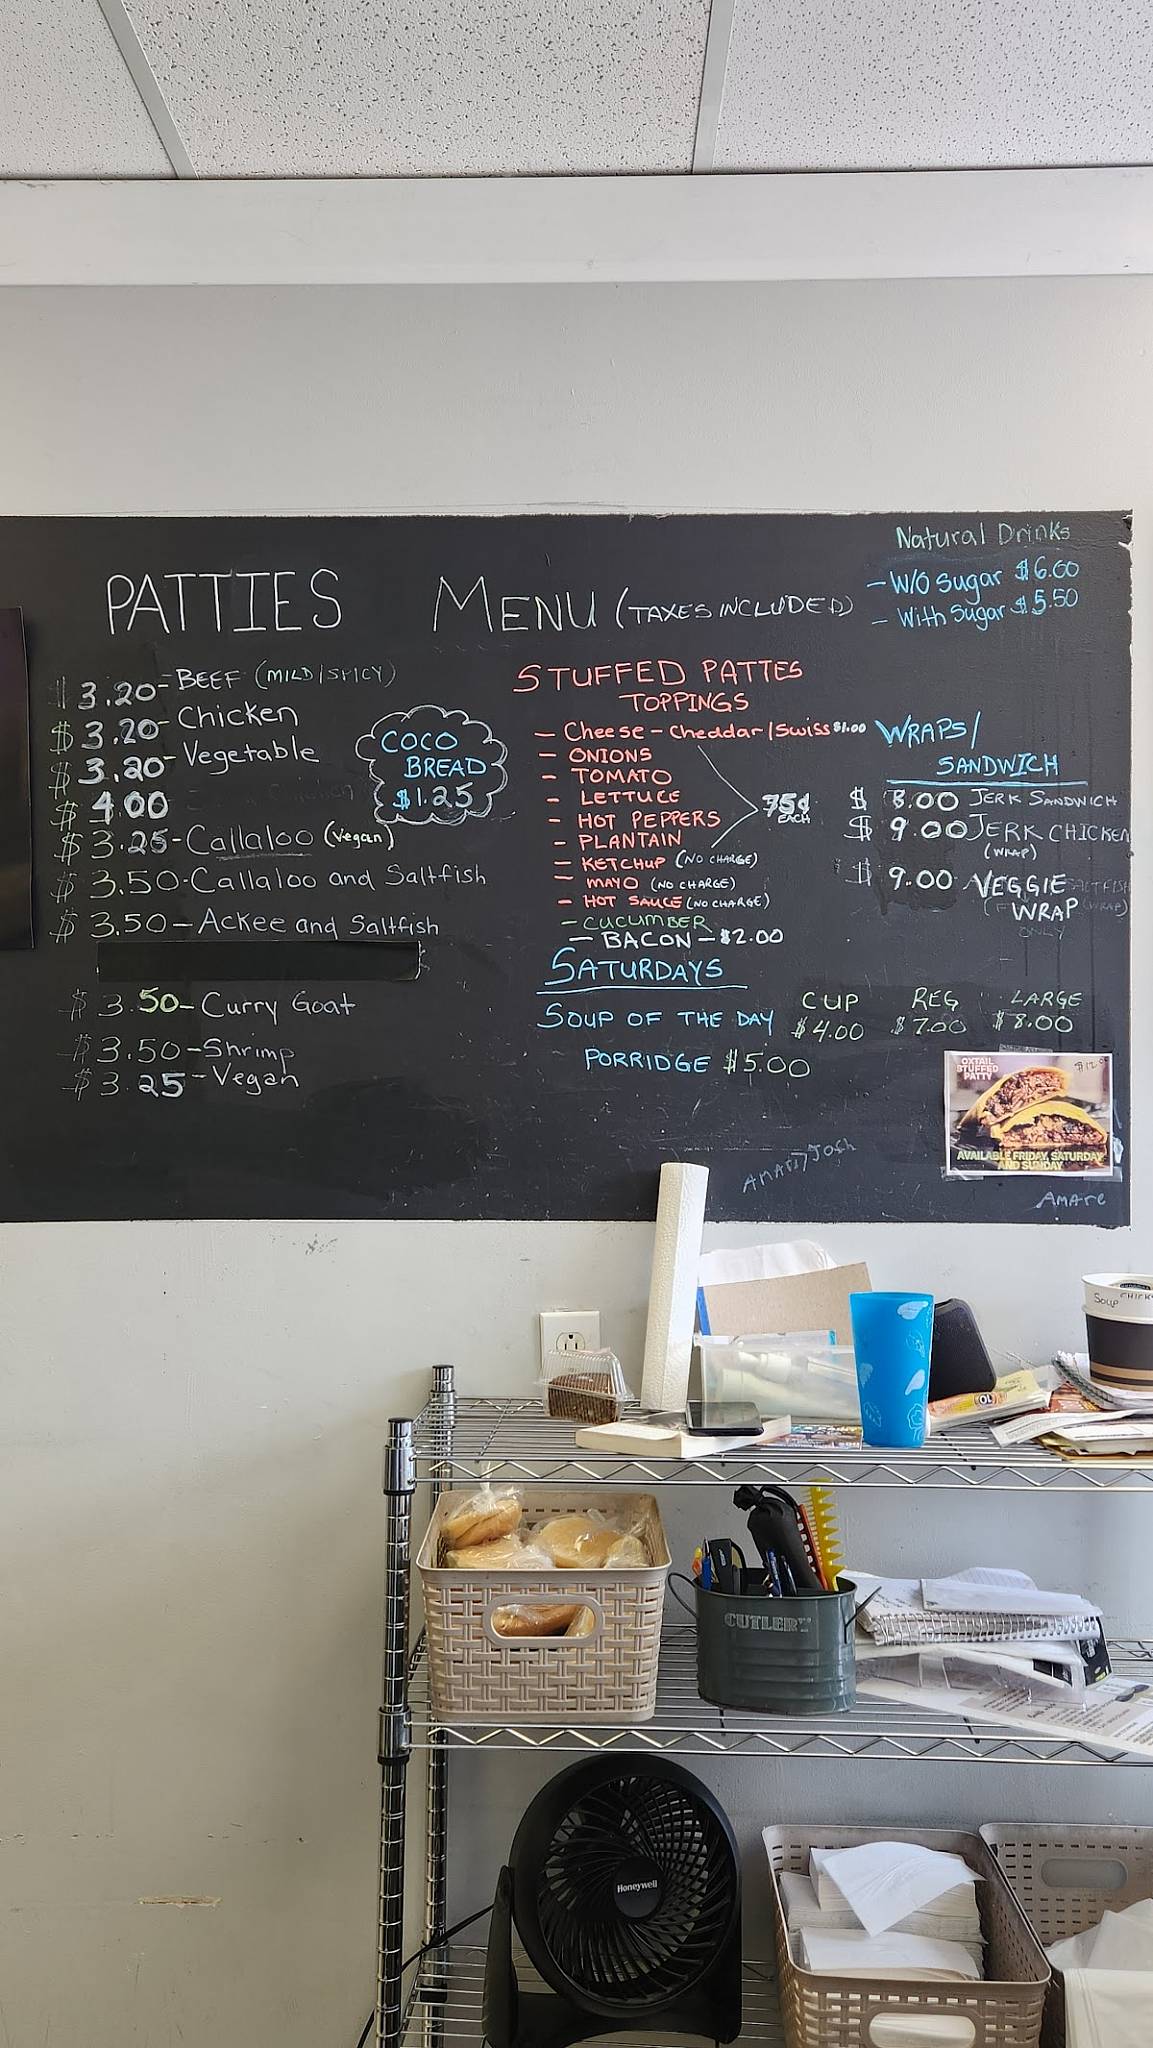 PATTIES MENU (TAXES INCLUDED)
Natural Drinks
- W/O Sugar $6.00
- With Sugar $5.50
$3.20 - BEEF (MILD/SPICY)
$3.20 - Chicken
$3.20 - Vegetable
$4.00
$3.25 - Callaloo (Vegan)
$3.50 - Callaloo and Saltfish
$3.50 - Ackee and Saltfish
$3.50 - Curry Goat
$3.50 - Shrimp
$3.25 - Vegan
COCO
BREAD
$1.25
STUFFED PATTES
TOPPINGS
- Cheese - Cheddar/Swiss $1.00
- ONIONS
- TOMATO
- LETTUCE
- HOT PEPPERS
- PLANTAIN
75¢
EACH
- KETCHUP (NO CHARGE)
- MAYO (NO CHARGE)
- HOT SAUCE (NO CHARGE)
- CUCUMBER
- BACON - $2.00
WRAPS/
SANDWICH
$8.00 JERK SANDWICH
$9.00 JERK CHICKEN
(WRAP)
$9.00 VEGGIE
WRAP
ONLY
SATURDAYS
CUP REG LARGE
SOUP OF THE DAY $4.00 $7.00 $8.00
PORRIDGE $5.00
OXTAIL
STUFFED
PATTY
AVAILABLE FRIDAY, SATURDAY
AND SUNDAY
Amare
Soup
CUTLERY
Honeywell